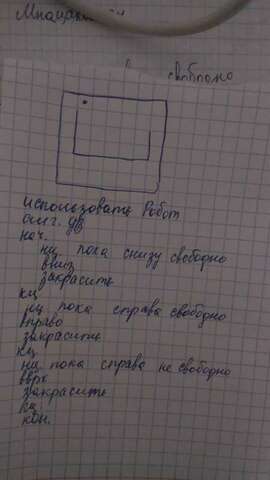 свободно
использовать Робот
алг. дз
нач.
нц пока снизу свободно
вниз
закрасить
кц
нц пока справа свободно
вправо
закрасить
кц
нц пока справа не свободно
вверх
закрасить
кц
кон.